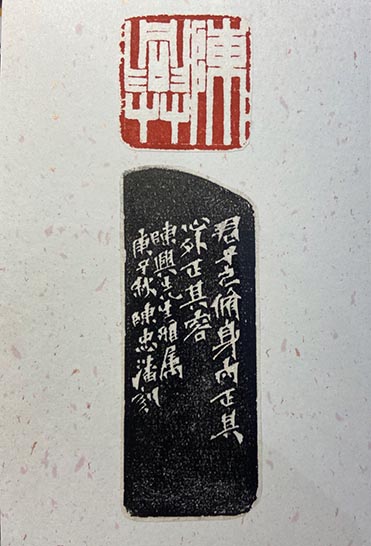 陳興
君子之脩身內正其
心外正其容
陳興先生雅属
庚子秋陳忠潘刻